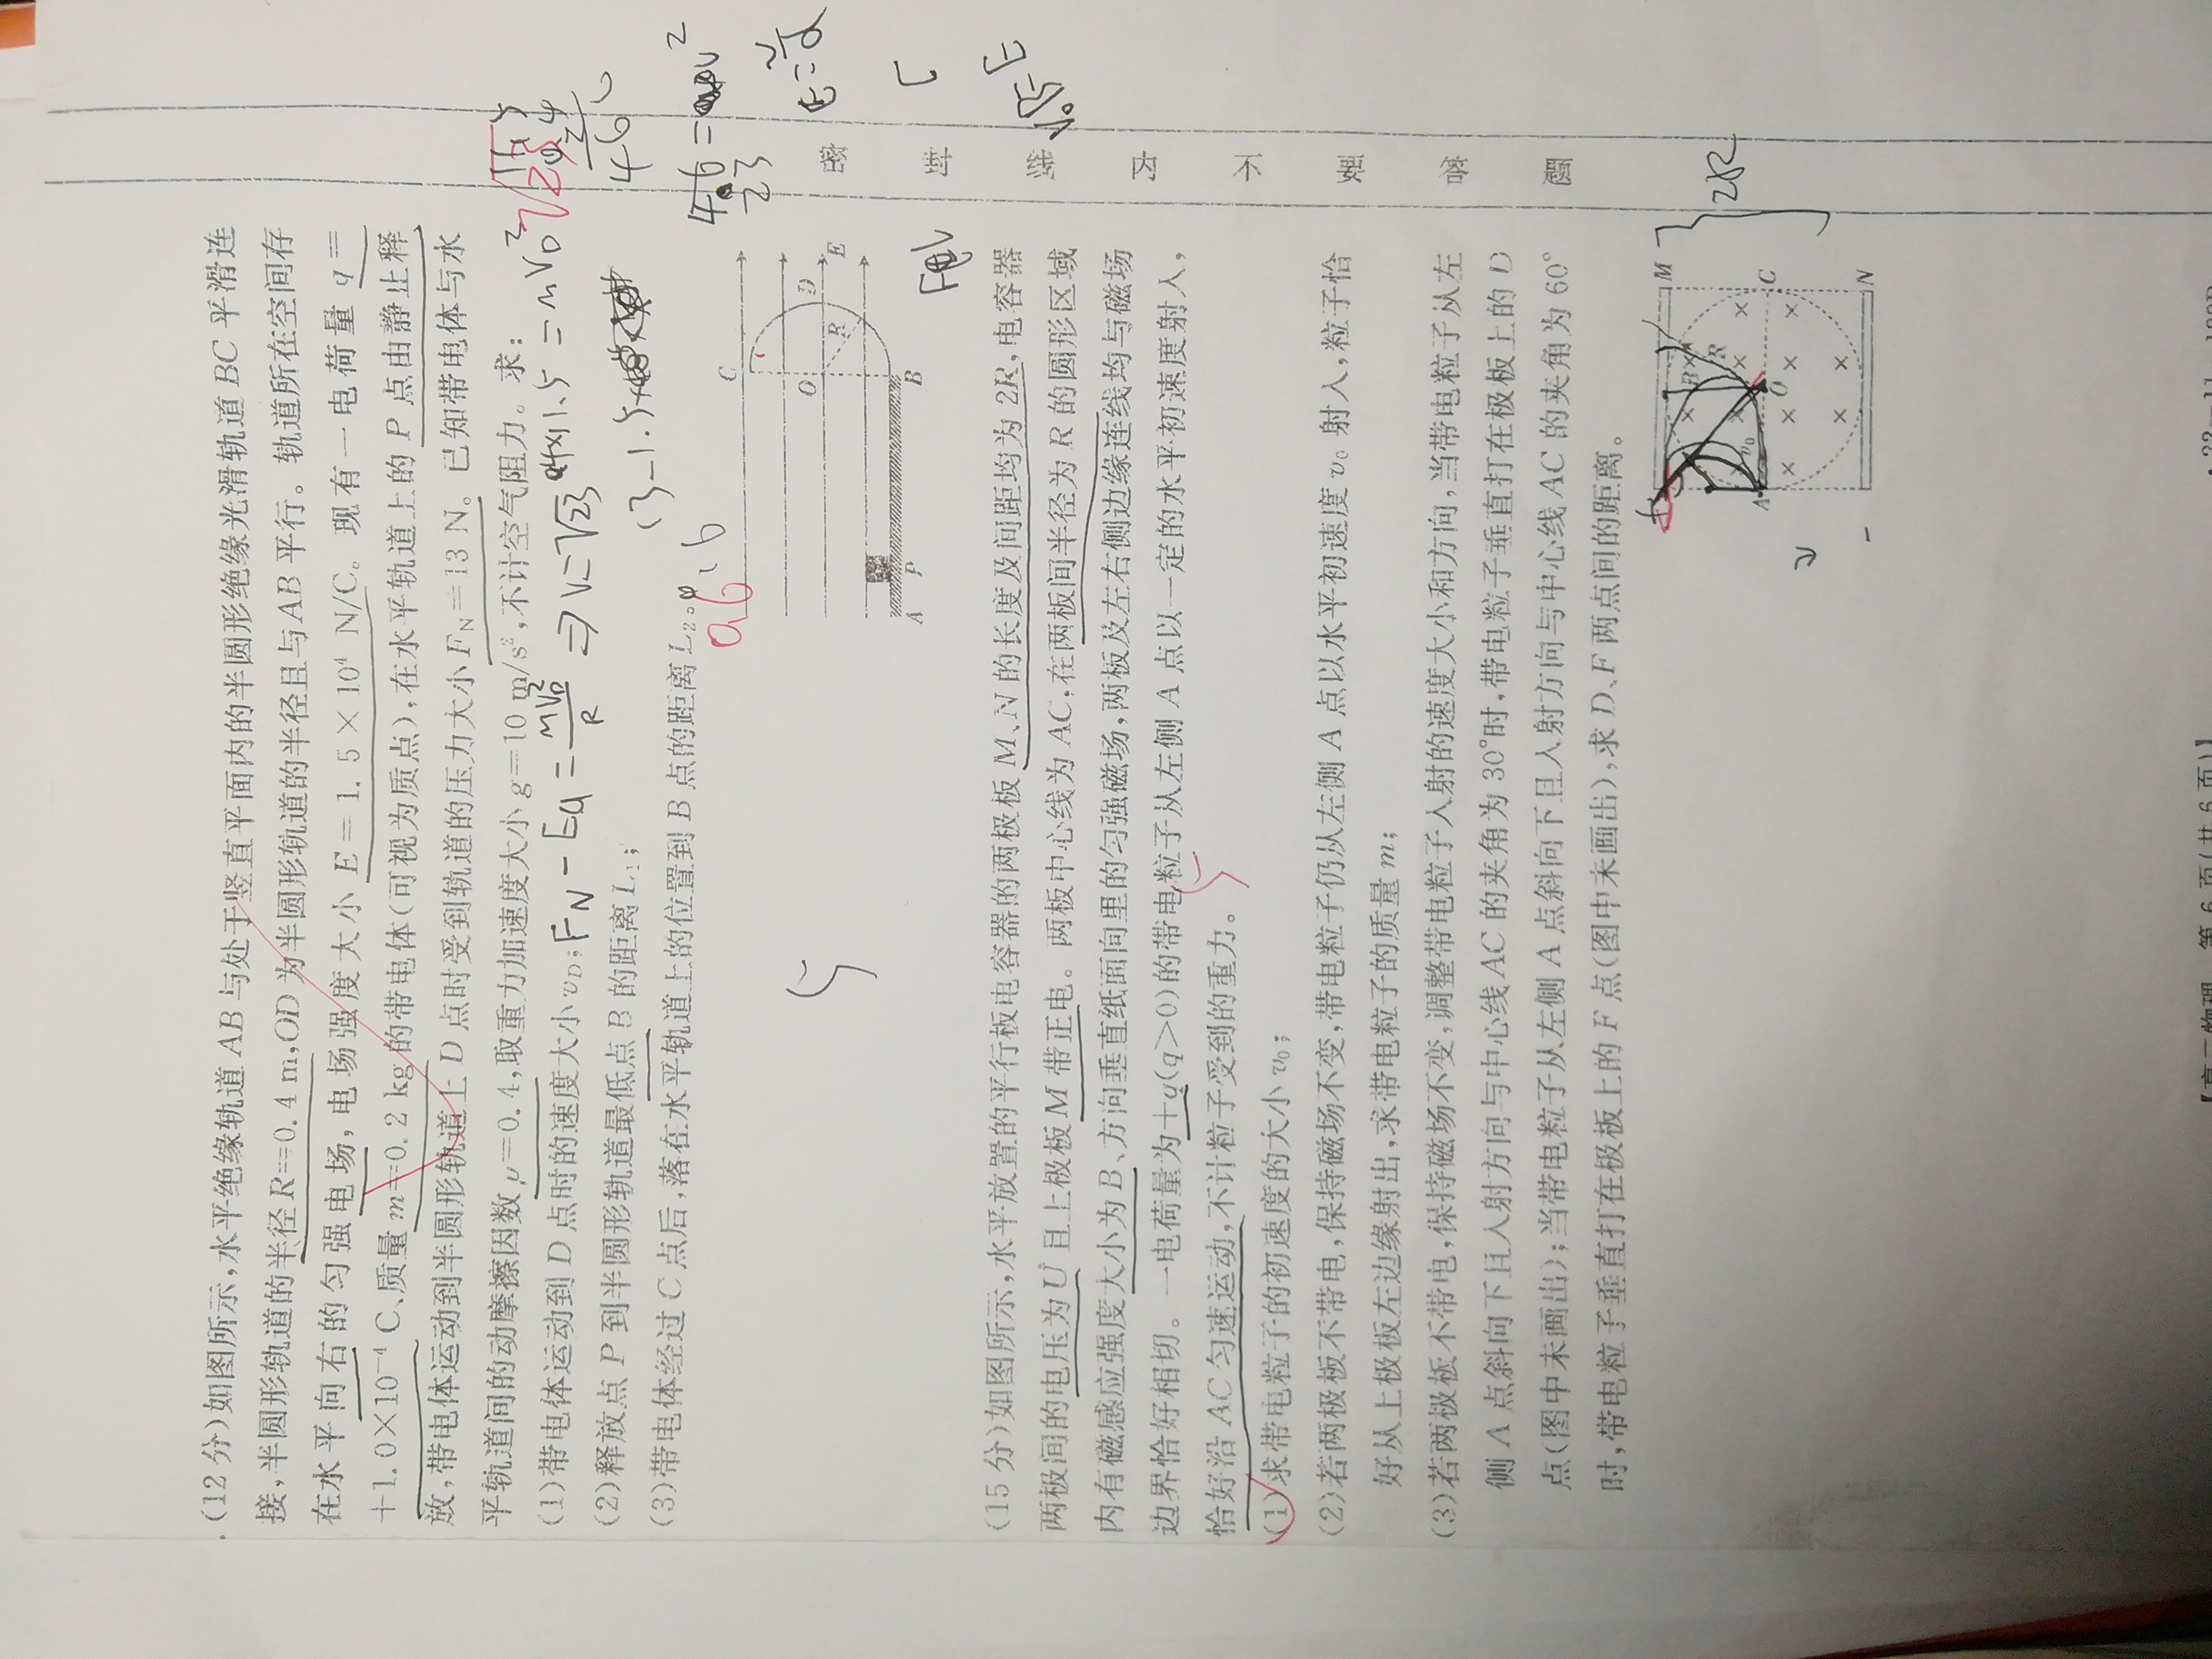 .(12分)如图所示,水平绝缘轨道AB与处于竖直平面内的半圆形绝缘光滑轨道BC平滑连
接,半圆形轨道的半径R=0.4 m,OD为半圆形轨道的半径且与AB平行。轨道所在空间存
在水平向右的匀强电场,电场强度大小E=1.5×10⁴ N/C。现有一电荷量q=
+1.0×10⁻⁴ C、质量m=0.2 kg的带电体(可视为质点),在水平轨道上的P点由静止释
放,带电体运动到半圆形轨道上D点时受到轨道的压力大小F_N=13 N。已知带电体与水
平轨道间的动摩擦因数μ=0.4,取重力加速度大小g=10 m/s²,不计空气阻力。求:
(1)带电体运动到D点时的速度大小v_D;
(2)释放点P到半圆形轨道最低点B的距离L₁;
(3)带电体经过C点后,落在水平轨道上的位置到B点的距离L₂。
F_N-Eq=mv_D²/R
C
O
R
D
E
A
P
B
(15分)如图所示,水平放置的平行板电容器的两极板M、N的长度及间距均为2R,电容器
两极间的电压为U且上极板M带正电。两板中心线为AC,在两板间半径为R的圆形区域
内有磁感应强度大小为B、方向垂直纸面向里的匀强磁场,两板及左右侧边缘连线均与磁场
边界恰好相切。一电荷量为+q(q>0)的带电粒子从左侧A点以一定的水平初速度射入,
恰好沿AC匀速运动,不计粒子受到的重力。
(1)求带电粒子的初速度的大小v₀;
(2)若两极板不带电,保持磁场不变,带电粒子仍从左侧A点以水平初速度v₀射入,粒子恰
好从上极板左边缘射出,求带电粒子的质量m;
(3)若两极板不带电,保持磁场不变,调整带电粒子入射的速度大小和方向,当带电粒子从左
侧A点斜向下且入射方向与中心线AC的夹角为30°时,带电粒子垂直打在极板上的D
点(图中未画出);当带电粒子从左侧A点斜向下且入射方向与中心线AC的夹角为60°
时,带电粒子垂直打在极板上的F点(图中未画出),求D、F两点间的距离。
M
C
N
A
O
R
B
v₀
2R
密
封
线
内
不
要
答
题